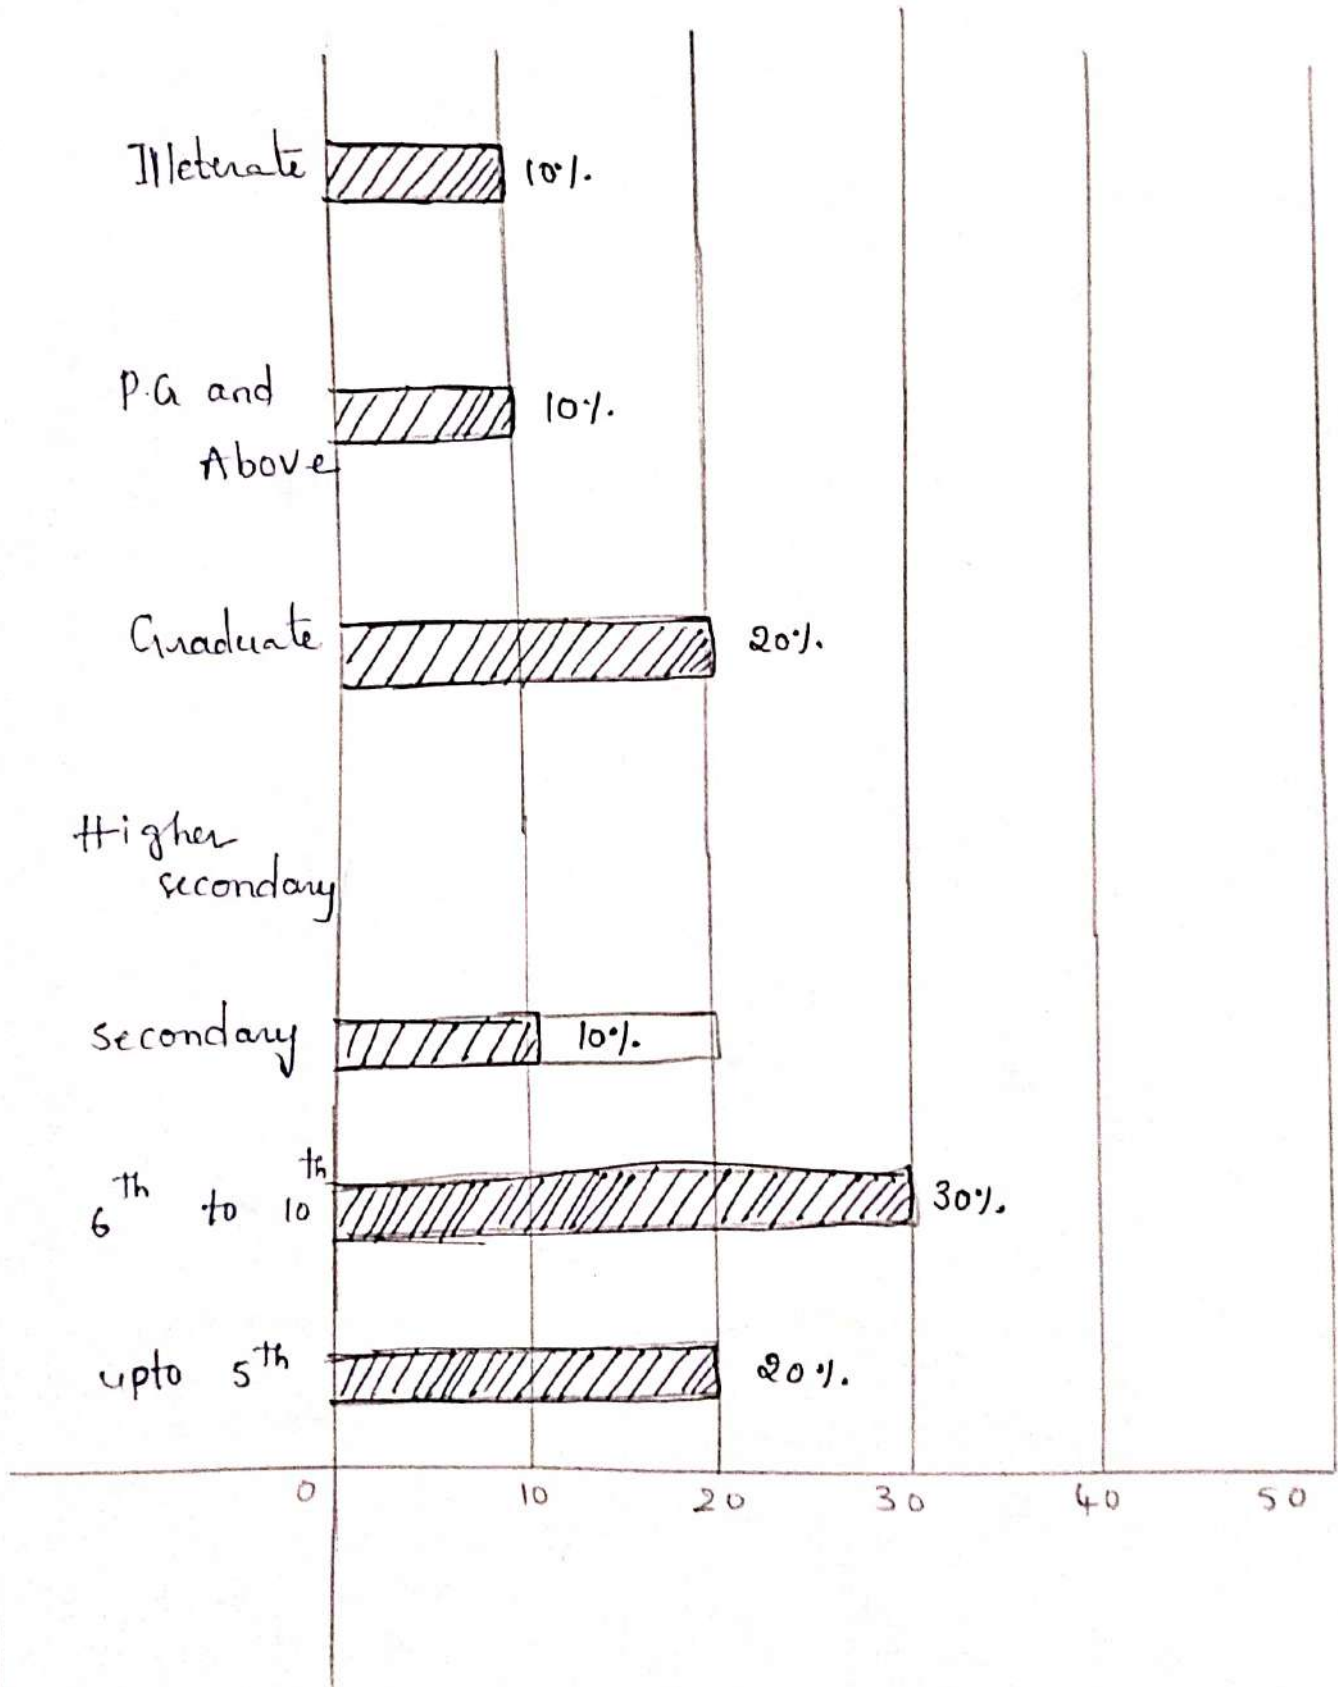 Illeterate 10%.
P.G and 10%.
Above
Graduate 20%.
Higher
secondary
secondary 10%.
6th to 10th 30%.
upto 5th 20%.
0 10 20 30 40 50